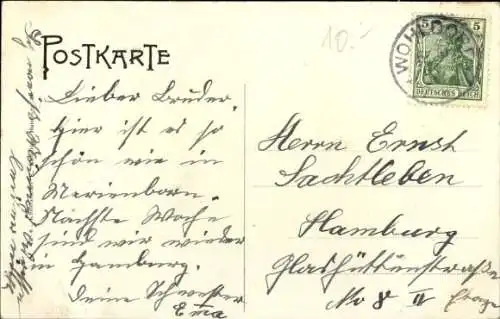 10.-
POSTKARTE
Lieber Bruder.
Hier ist es so
schön wie in
Marienborn.
Nächste Woche
sind wir wieder
in Hamburg.
Deine Schwester
Ema
WOHLDORF
5 5
DEUTSCHES REICH
Herrn Ernst
Sachtleben
Hamburg
Glashüttenstraße
No 8 II Etage